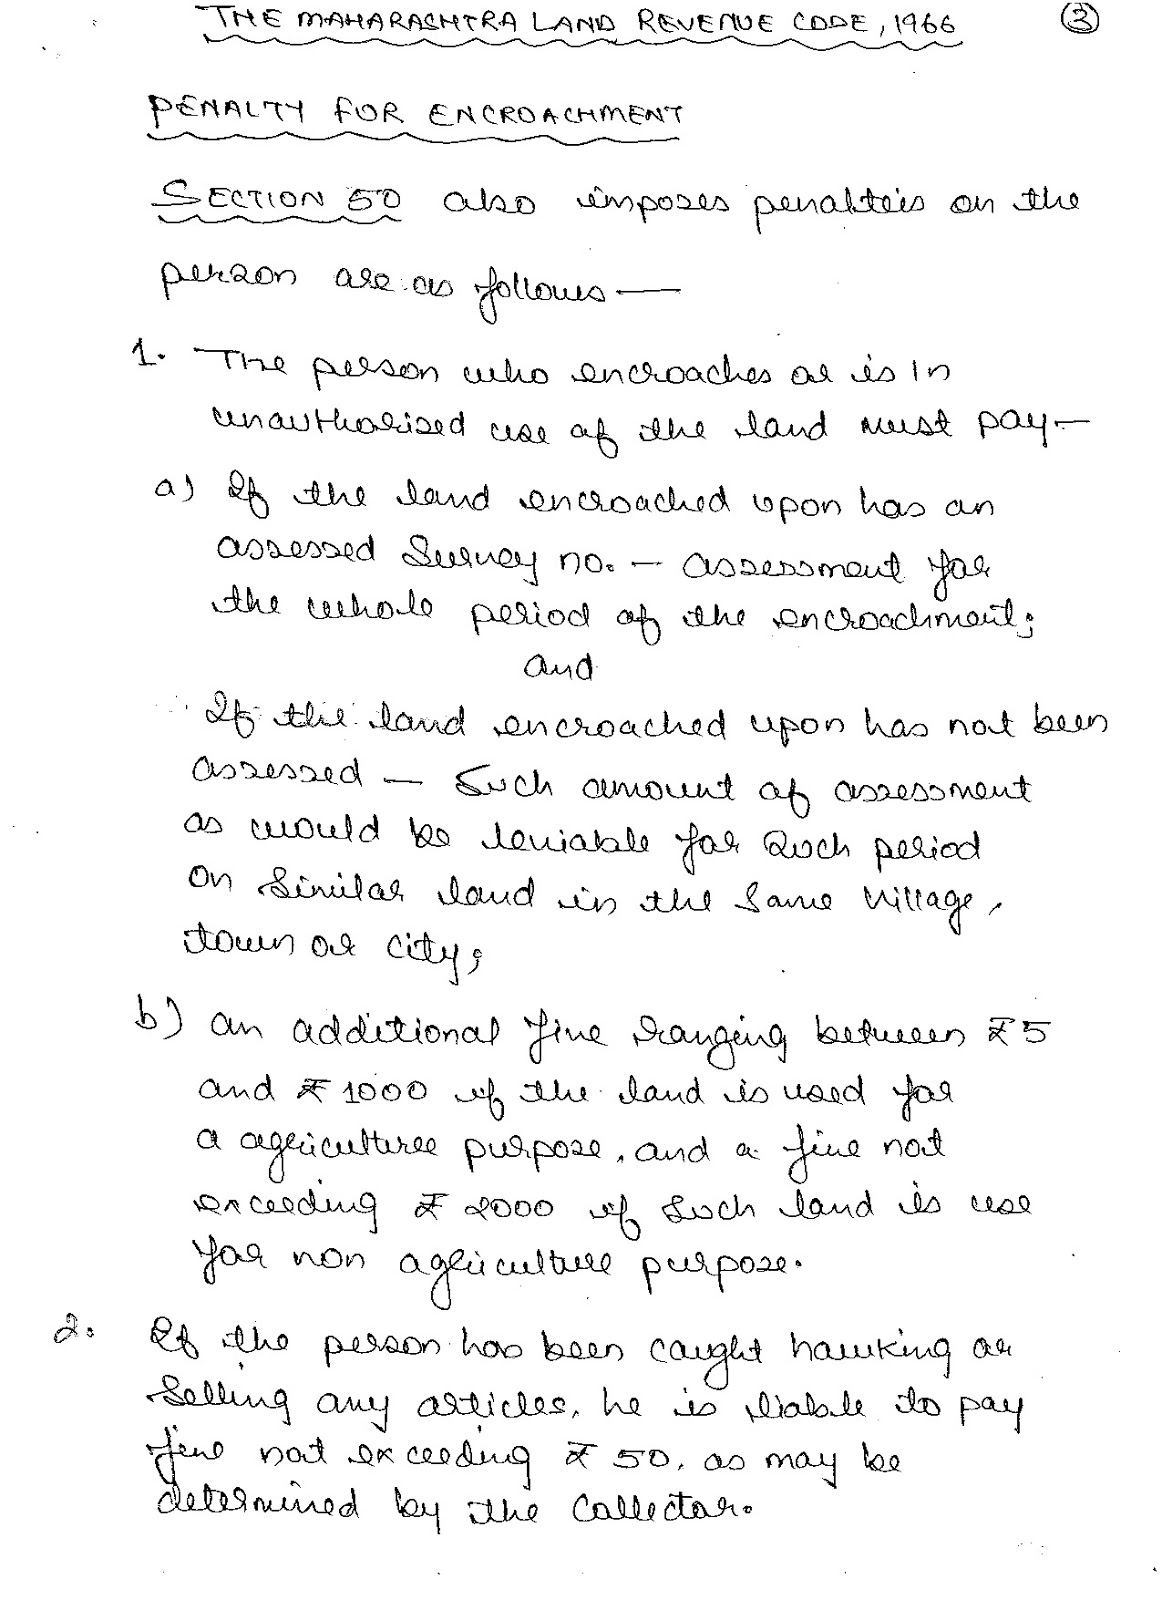 THE MAHARASHTRA LAND REVENUE CODE, 1966 3
PENALTY FOR ENCROACHMENT
SECTION 50 also imposes penalteis on the
person are as follows —
1. The person who encroaches or is in
unauthorised use of the land must pay -
a) If the land encroached upon has an
assessed Survey no. - assessment for
the whole period of the encroachment;
and
If the land encroached upon has not been
assessed - Such amount of assessment
as would be leviable for such period
on similar land in the same village,
town or city;
b) an additional fine ranging between ₹5
and ₹1000 if the land is used for
a agriculture purpose, and a fine not
exceeding ₹2000 if such land is use
for non agriculture purpose.
2. If the person has been caught hawking or
Selling any articles, he is liable to pay
fine not exceeding ₹50, as may be
determined by the Collector.